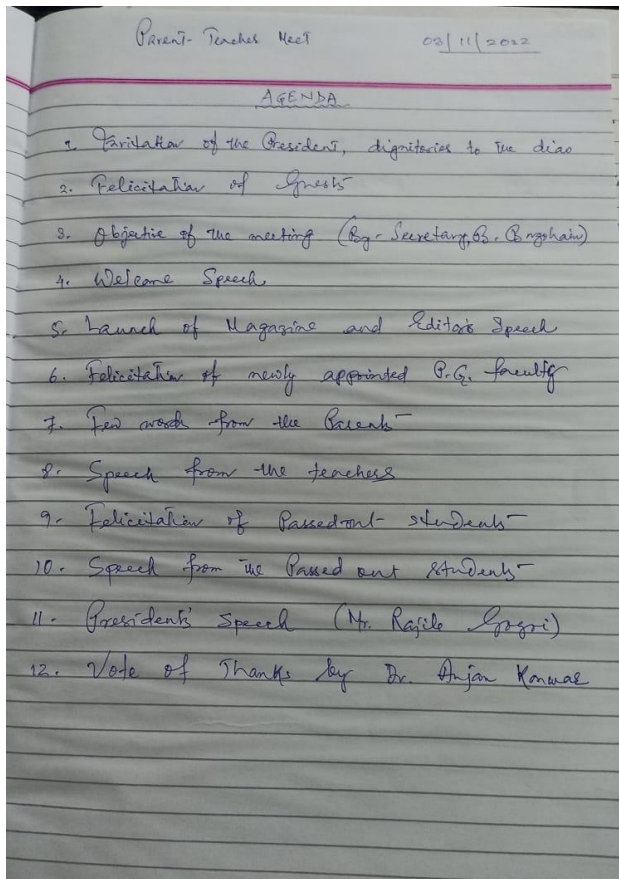 Parent-Teacher Meet 03/11/2022
AGENDA
1. Invitation of the President, dignitories to the dias
2. Felicitation of Guests
3. Objective of the meeting (By- Secretary, B. Borgohain)
4. Welcome Speech
5. Launch of Magazine and Editor's Speech
6. Felicitation of newly appointed P.G. faculty
7. Few words from the Parents
8. Speech from the teachers
9. Felicitation of Passed out students
10. Speech from the Passed out students
11. President's Speech (Mr. Gogoi)
12. Vote of Thanks by Dr. Anjan Konwar